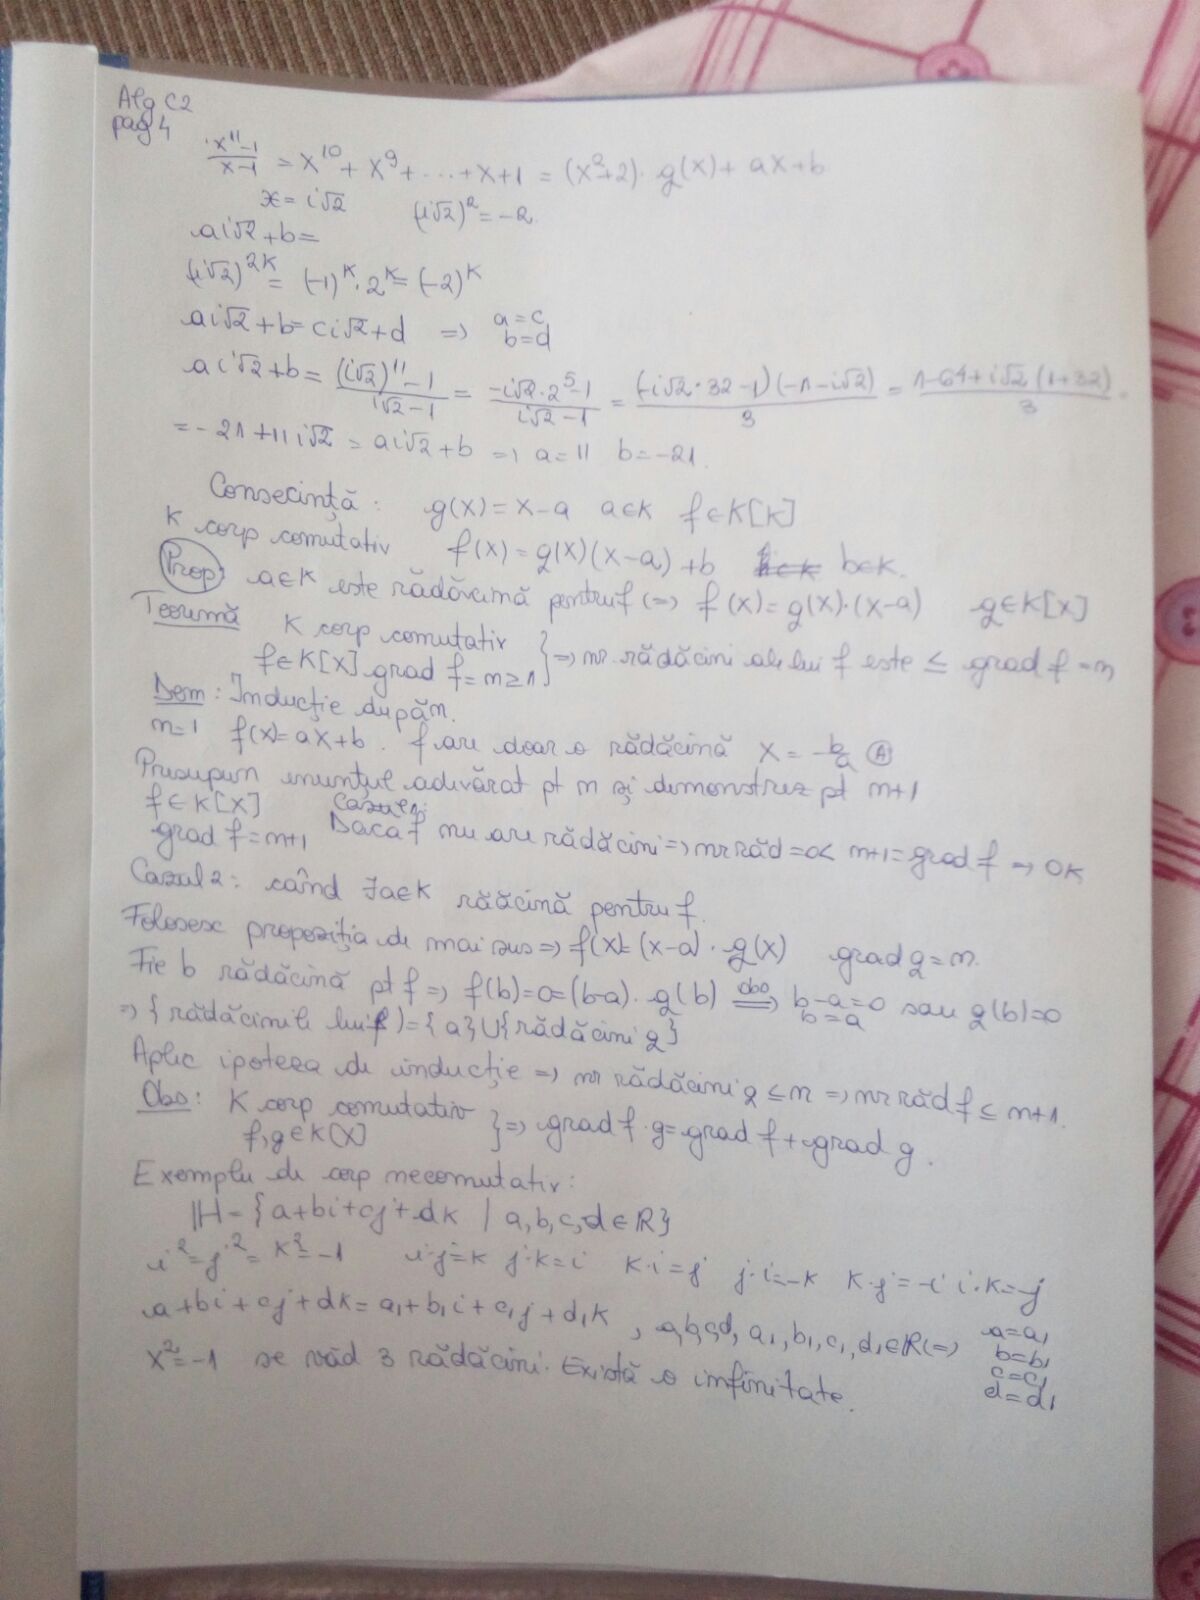 Alg C2
pag 4
(x¹¹-1)/(x-1) = x¹⁰ + x⁹ + ... + x + 1 = (x²+2)·g(x) + ax+b
x = i√2 (i√2)² = -2.
ai√2+b=
(i√2)²ᵏ = (-1)ᵏ·2ᵏ = (-2)ᵏ
ai√2+b = ci√2+d => a=c b=d
ai√2+b = ((i√2)¹¹-1)/(i√2-1) = (-i√2·2⁵-1)/(i√2-1) = (-i√2·32-1)(-1-i√2)/3 = (1-64+i√2(1+32))/3 =
= -21+11i√2 = ai√2+b => a=11 b=-21.
Consecință: g(x)=x-a a∈K f∈K[K]
K corp comutativ f(x)=g(x)(x-a)+b b∈K.
Prop: a∈K este rădăcină pentru f (=> f(x)=g(x)·(x-a) g∈K[x]
Teoremă K corp comutativ
f∈K[x] grad f=n≥1 } => nr. rădăcini ale lui f este ≤ grad f = n
Dem: Inducție după n.
n=1 f(x)=ax+b. f are doar o rădăcină x = -b/a (A)
Presupun enunțul adevărat pt n și demonstrez pt n+1
f∈K[x] Cazul 1:
grad f=n+1 Daca f nu are rădăcini => nr răd=0< n+1=grad f => OK
Cazul 2: când ∃a∈K răăcină pentru f.
Folosesc propoziția de mai sus => f(x)=(x-a)·g(x) grad g=n.
Fie b rădăcină pt f => f(b)=0=(b-a)·g(b) =obs=> b-a=0 sau g(b)=0
b=a
=> {rădăcinile lui f}={a}∪{rădăcini g}
Aplic ipoteza de inducție => nr rădăcini g ≤ n => nr răd f ≤ n+1.
Obs: K corp comutativ
f,g∈K[x] } => grad f·g=grad f+grad g.
Exemplu de corp necomutativ:
ℍ={a+bi+cj+dk / a,b,c,d∈ℝ}
i²=j²=k²=-1 i·j=k j·k=i k·i=j j·i=-k k·j=-i i·k=-j
a+bi+cj+dk=a₁+b₁i+c₁j+d₁k, a,b,c,d, a₁,b₁,c₁,d₁∈ℝ (=> a=a₁
b=b₁
c=c₁
d=d₁
x²=-1 se văd 3 rădăcini. Există o infinitate.